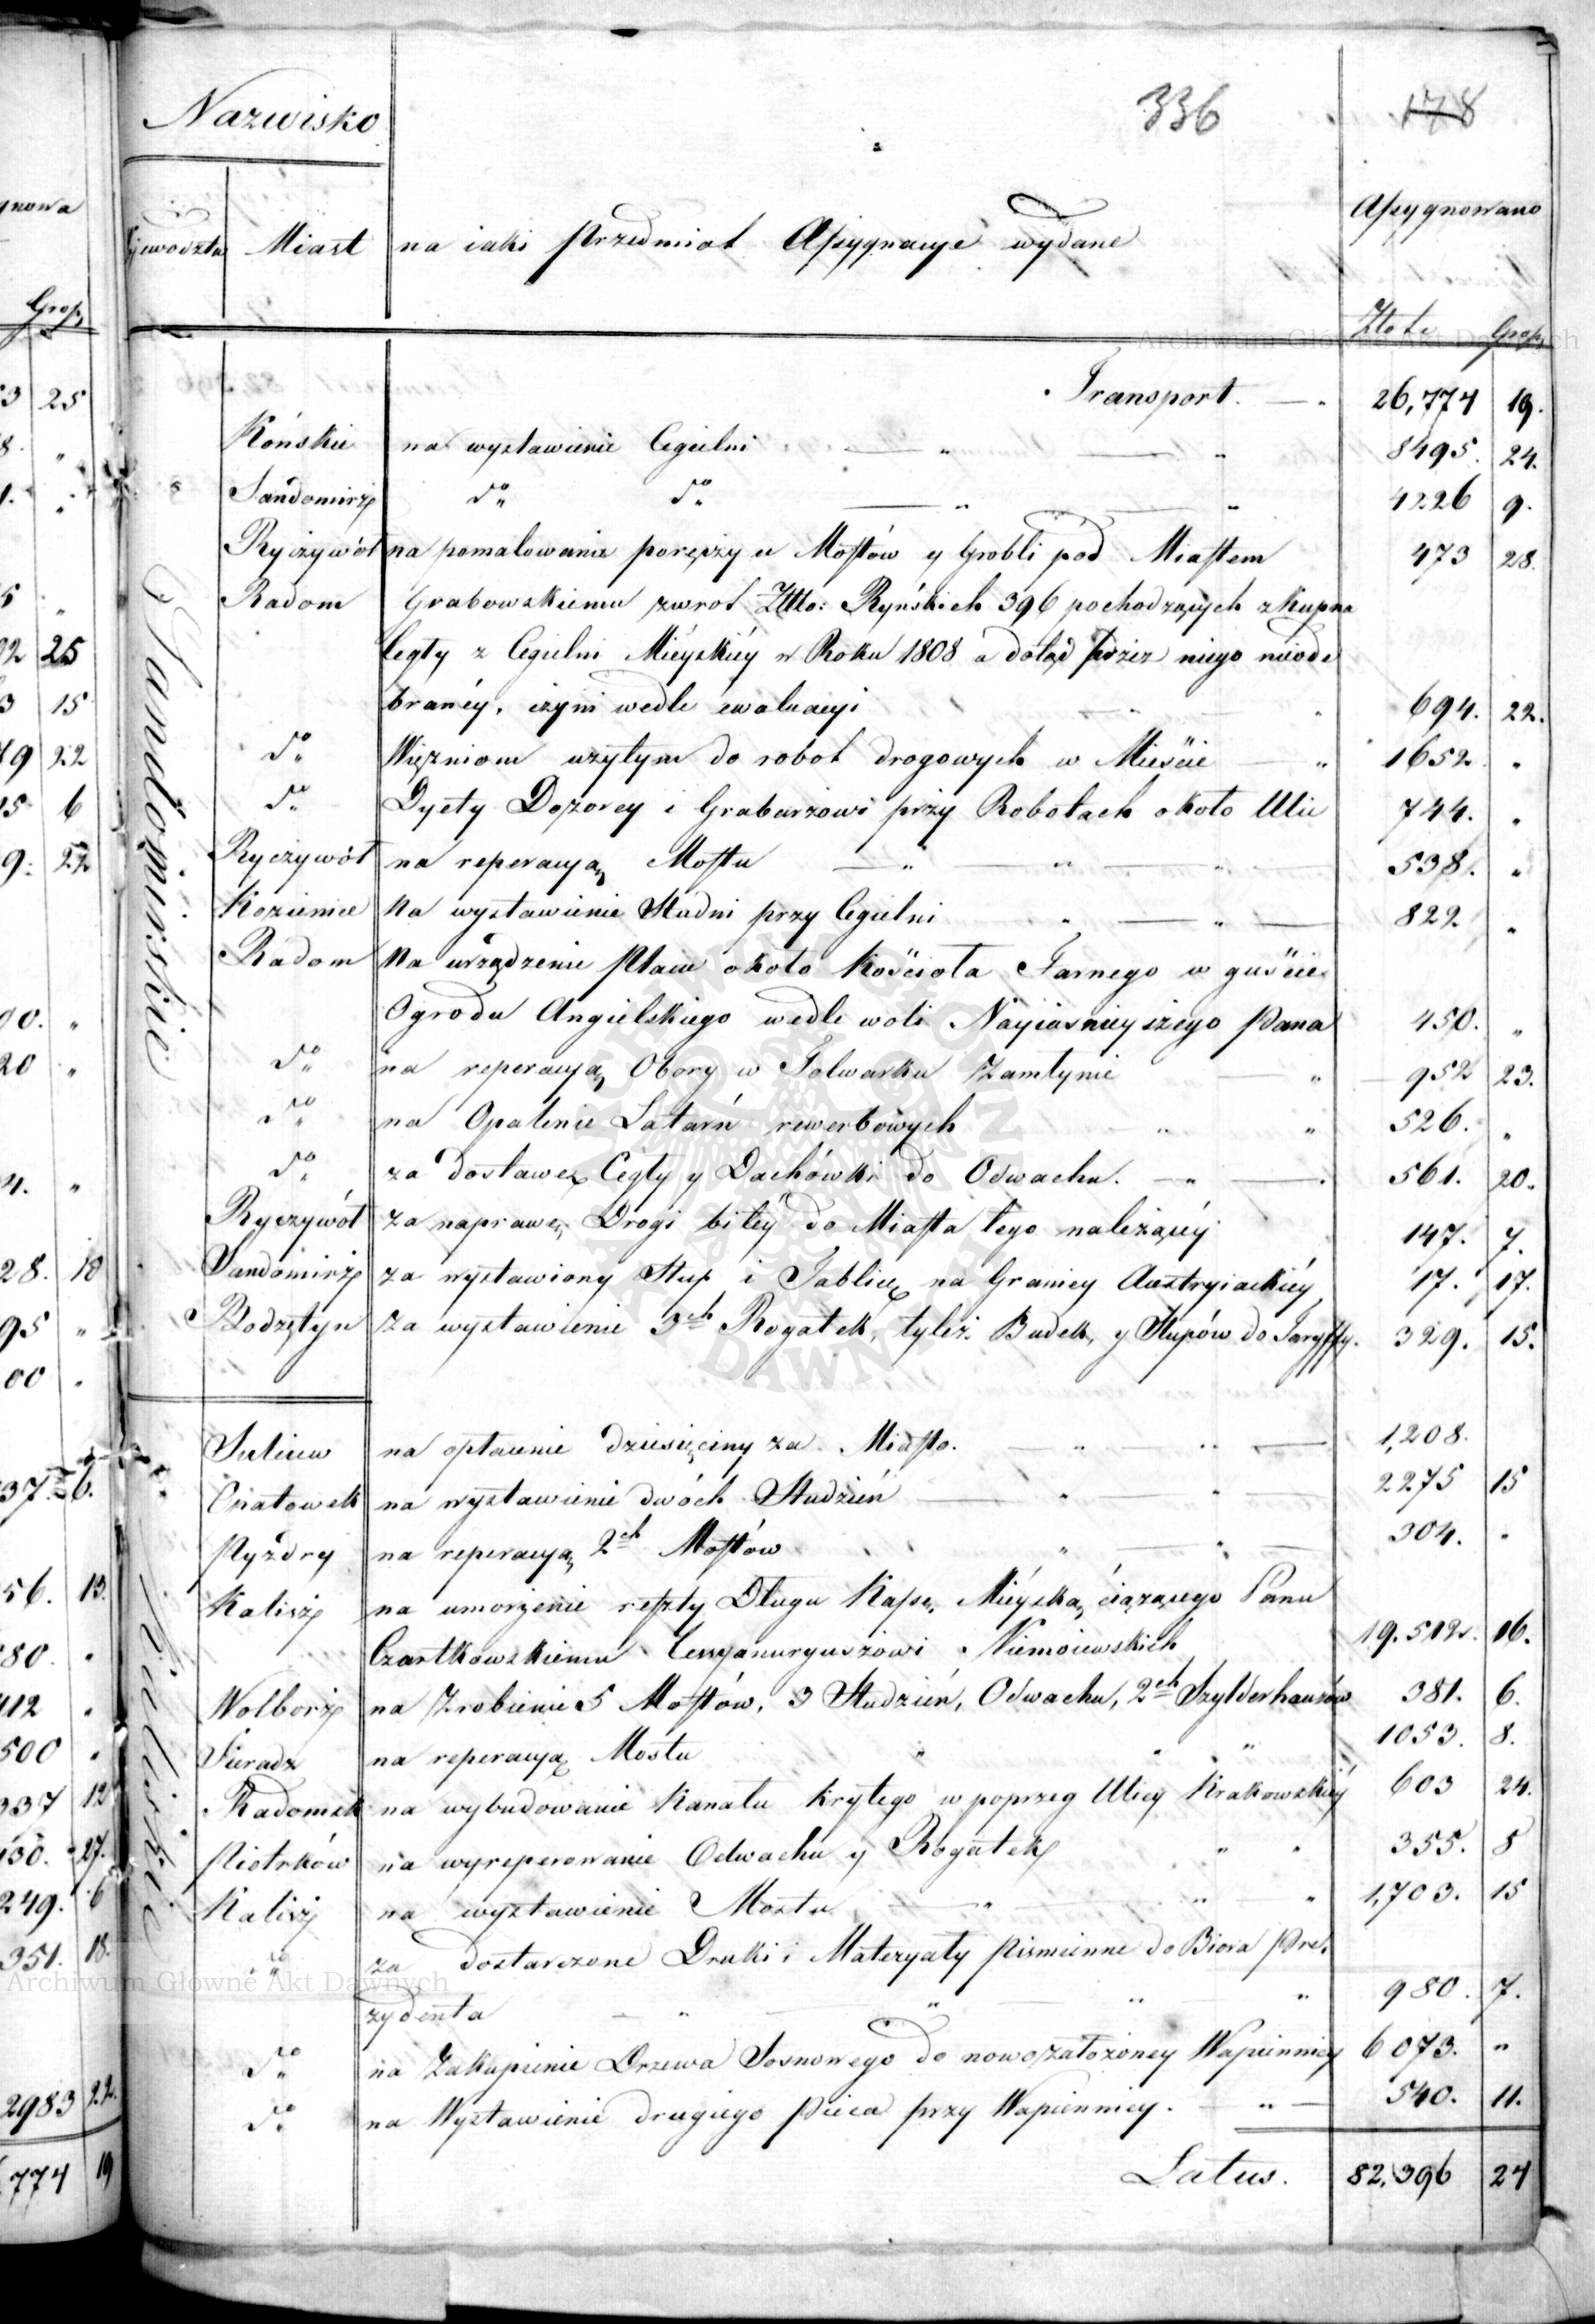 336 178
Nazwisko
Assygnowano
Miast na iaki Przedmiot Assygnacye wydane
Złote Grosz,
Transport. 26,774 19.
Sandomirskie
Końskie na wystawienie Cegielni " " 8495. 24.
Sandomirz do do " " 4226 9.
Ryczywół na pomalowanie poręczy u Mostów y Grobli pod Miastem 473 28.
Radom Grabowskiemu zwrot Złło: Ryńskich 396 pochodzących z kupna
Cegły z Cegielni Miéyskiéy w Roku 1808 a dotąd przez niego nieode
branéy, czyni wedle ewaluacyi " 694. 22.
do Więzniom użytym do robot drogowych w Mieście " 1652 "
do Dyety Dozorcy i Grabarzowi przy Robotach około Ulic 744. "
Ryczywół na reperacyą Mostu " " " 538. "
Kozienice Na wystawienie Studni przy Cegielni " " 822 "
Radom Na urządzenie Placu około Kościoła Farnego w guście
Ogrodu Angielskiego wedle woli Nayiasnieyszego Pana 450. "
do na reperacyą Obory w Folwarku Zamłynie " 952 23.
do na Opalenie Latarń rewerbowych " " 526. "
do za dostawę Cegły y Dachówki do Odwachu. " 561. 20.
Ryczywół za naprawę Drogi bitéy do Miasta tego należącéy 147. 7.
Sandomirz za wystawiony Słup i Tablicę na Granicy Austryiackiéy 17. 17.
Bodzętyn Za wystawienie 3ch Rogatek, tyleż Budek, y Słupów do Taryffy. 329. 15.
Kaliskie
na opłacenie dziesięciny za Miasto. " " 1,208.
Opatowek na wystawienie dwóch Studzień " " 2275 15
Pyzdry na reperacyą 2ch Mostów " " 304. "
Kalisz na umorzenie reszty Długu Kassę Miéyską ciążącego Panu
Czartkowskiemu Cessyonaryuszowi Niemoiewskich 19.512. 16.
Wolborz na Zrobienie 5 Mostów, 3 Studzień, Odwachu, 2ch Szylderhauzów 381. 6.
Sieradz na reperacyą Mostu " " " 1053. 8.
Radomsk na wybudowanie Kanału krytego w poprzeg Ulicy Krakowskiéy 603 24.
Piotrków na wyreperowanie Odwachu y Rogatek " " 355. 8
Kalisz na wystawienie Mostu " " " 1,703. 15
do za dostarczone Druki i Materyały Piśmienne do Biora Pre.
zydenta " " " " 980. 7.
do na Zakupienie Drzewa Sosnowego do nowozałożoney Wapiennicy 6073. "
do na Wystawienie drugiego Pieca przy Wapiennicy. " 540. 11.
Latus. 82,396 24
gnowa
Grosz,
25
25
15
22
6
22
28. 18
56. 13.
112 "
500 "
337 12
130. 27.
249. 6
351. 18.
2983 22.
774 19
Archiwum Główne Akt Dawnych
Archiwum Główne Akt Dawnych